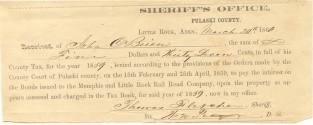 SHERIFF'S OFFICE,
PULASKI COUNTY.
LITTLE ROCK, ARKS. March 20th 1860
Received, of John O'Brien the sum of
Five Dollars and Cents, in full of his
County Tax, for the year 1859, levied according to the provisions of the Orders made by the
County Court of Pulaski county, on the 15th February and 25th April, 1859, to pay the interest on
the Bonds issued to the Memphis and Little Rock Rail Road Company, upon the property as ap-
pears assessed and charged in the Tax Book, for said year of 1859, now in my office.
Thomas Sheriff,
By D. S.